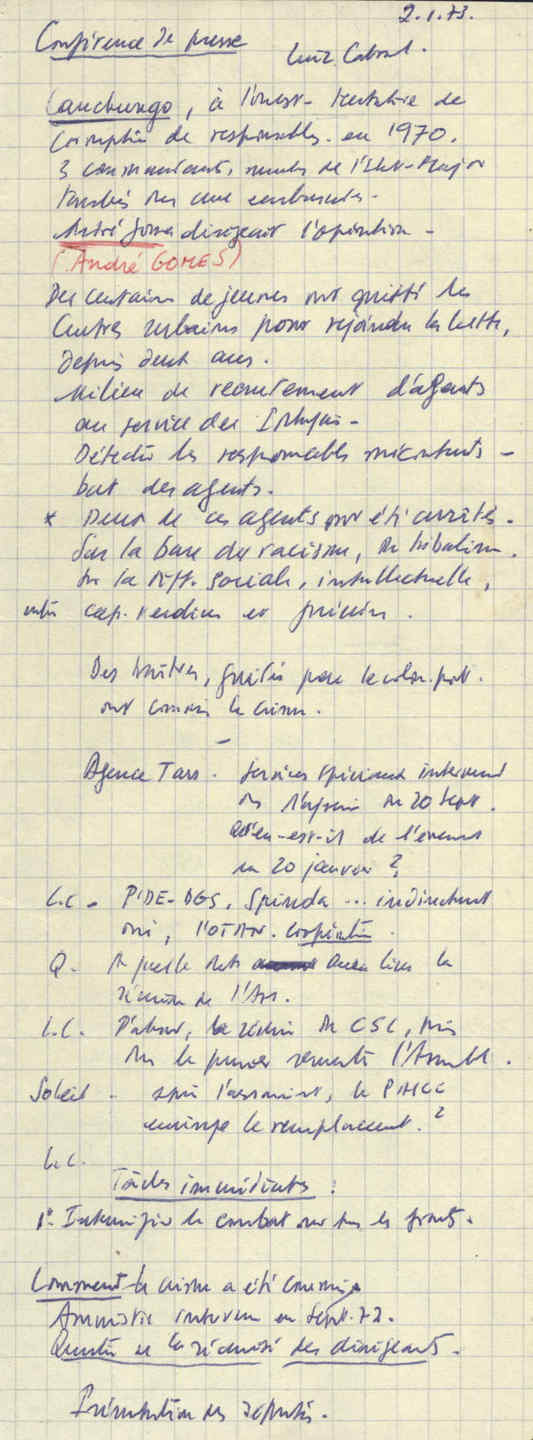 2.1.73.
Conférence de presse
Luiz Cabral.
Canchungo, à l'ouest - tentative de
corruption de responsables. en 1970.
3 commandants, membres de l'Etat-Major
tombés dans une embuscade -
André Gomes dirigeait l'opération -
(André GOMES)
Des centaines de jeunes ont quitté les
Centres urbains pour rejoindre la lutte,
depuis deux ans.
Milieu de recrutement d'agents
au service des Portugais -
Détecter les responsables mécontents -
but des agents.
* Deux de ces agents ont été arrêtés.
Sur la base du racisme, du tribalisme.
Sur la diff. sociale, intellectuelle,
entre cap-verdien et guinéen.
Des traîtres, guidés par le colon. port.
ont commis le crime.
-
Agence Tass - Services spéciaux
du 20 Sept.
Qu'en-est-il de l'évènement
du 20 janvier ?
L.C - PIDE-DGS, Spinola ... indirectement
oui, l'OTAN.
Q. A quelle date aura lieu la
réunion de l'Ass.
L.C. D'abord, la réunion du CSL, puis
l'Assemblée.
Soleil - après l'assassinat, le PAIGC
envisage le remplacement ?
L.C.
Tâches immédiates :
1° Intensifier le combat sur tous les fronts.
Comment le crime a été commis
Amnistie intervenue en Sept. 72.
Question de la sécurité des dirigeants.
Présentation des députés.